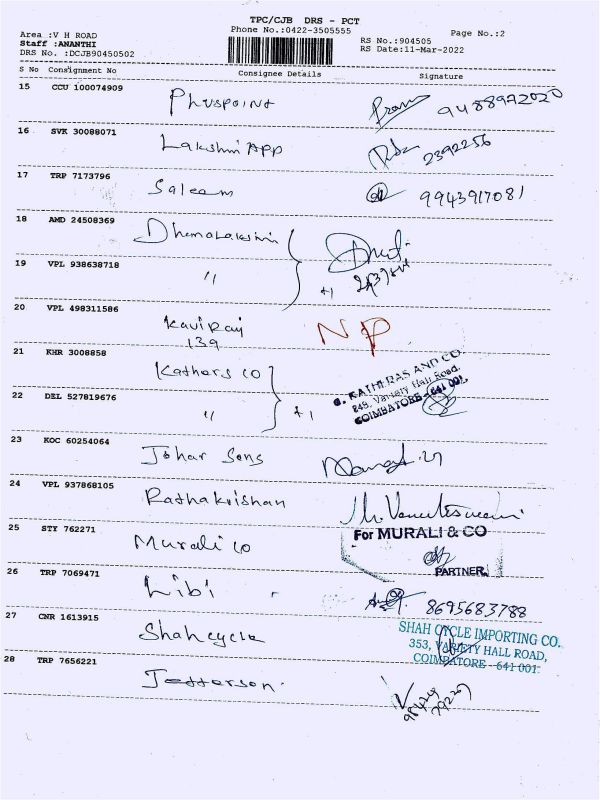 TPC/CJB DRS - PCT
Area :V H ROAD Phone No.:0422-3505555 Page No.:2
Staff :ANANTHI RS No.:904505
DRS No. :DCJB90450502 RS Date:11-Mar-2022
S No Consignment No Consignee Details Signature
15 CCU 100074909 Pluspoint 9488972020
16 SVK 30088071 Lakshmi App 2392256
17 TRP 7173796 Saleem 9943917081
18 AMD 24508369
19 VPL 938638718 〃 +1
20 VPL 498311586 Kaviraj NP
139
21 KHR 3008858 Kathers co
G. KATHERAS AND CO.
849, Variety Hall Road,
COIMBATORE - 641 001.
22 DEL 527819676 〃 +1
23 KOC 60254064 Johar Sons
24 VPL 937868105 Rathakrishan
25 STY 762271 Murali co
For MURALI & CO
PARTNER.
26 TRP 7069471 Libi 8695683788
27 CNR 1613915 Shahcycle
SHAH CYCLE IMPORTING CO.
353, VARIETY HALL ROAD,
COIMBATORE - 641 001.
28 TRP 7656221 Jefferson